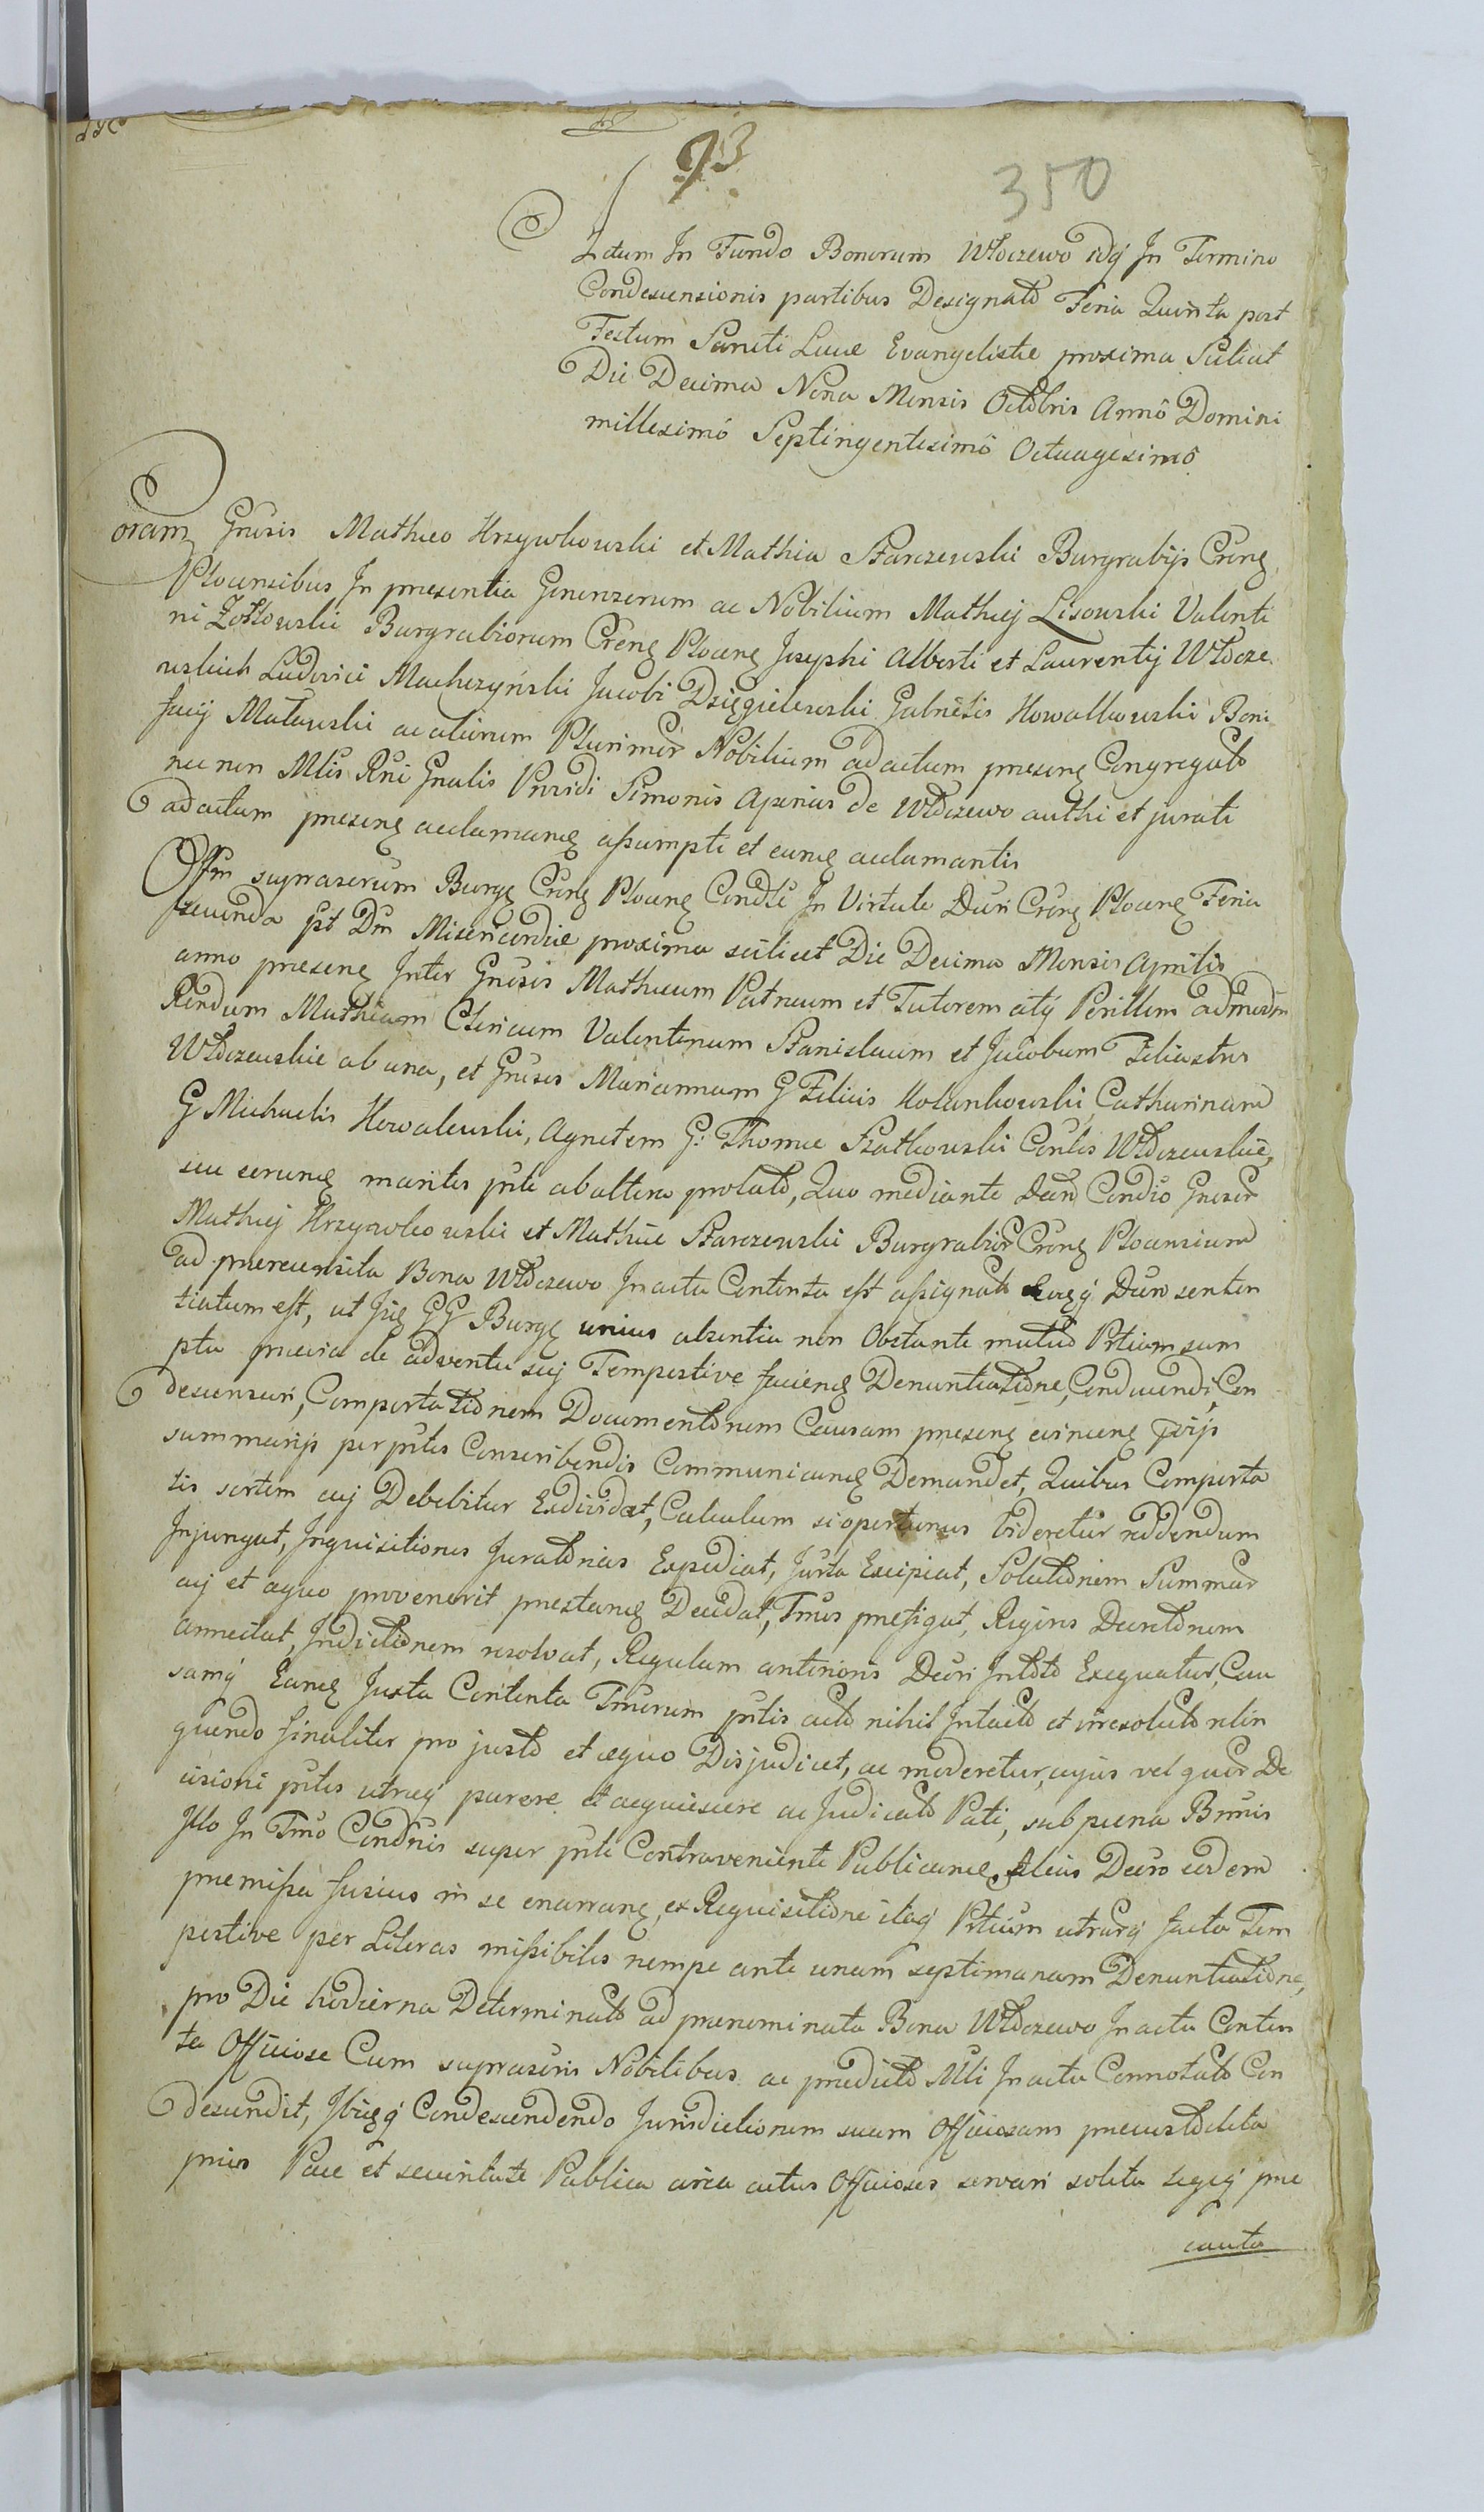 93
350
Actum In Fundo Bonorum Włoczewo idq́ In Termino
Condescensionis partibus Designato Feria Quinta post
Festum Sancti Lucæ Evangelistæ proxima Scilicet
Die Decima Nona Mensis Octobris Annô Domini
millesimô Septingentesimô Octuagesimô
Coram Gnĩsis Mathæo Krzywkowski et Mathia Starzewski Burgrabijs Crĩnę
Plocensibus In præsentia Generosorum ac Nobilium Mathiej Lisowski Valenti
ni Zołtowski Burgrabiorum Crẽnę Plocenę Josephi Alberti et Laurentij Włocze
wskich Ludovici Machczyński Jacobi Dzięgielewski Gabrielis Kowalkowski Boni
facij Małowski ac aliorum Plurimor̃ Nobilium ad actum præsenę Congregato
nec non Mlis Rni Gnalis Prvidi Simonis Apenas de Włoczewo authi et jurati
ad actum præsenę acclamanę assumpti et eunę acclamantis
Offm suprascrum Burgę Crẽnę Plocenę Condlẽ In Virtute Dcri Crẽnę Plocenę Feria
secunda pt Dm Misericordiæ proxima scilicet Die Decima Mensis Aprilis
anno præsenę Inter Gnĩsos Mathæum Patruum et Tutorem atq́ Perillem admodm
Rndum Mathiam Clericum Valentinum Stanislaum et Jacobum Filiastros
Włoczewskie ab una, et Gnĩsos Mariannam G Felicis Kołankowski, Catharinam
G Michaelis Kowalewski, Agnetem G: Thomæ Szatkowski Conles Włoczewskie,
seu earunę maritos pte ab altera prolato, Quo mediante Dcro Condlo Gnĩsor̃
Mathiej Krzywkowski et Mathiæ Starzewski Burgrabior̃ Crẽnę Plocensium
ad præreunsita Bona Włoczewo In actu Contenta est assignato Eoq́ Dcro senten
tiatum est, ut Jdę GG Burgę unius absentia non Obstante mutuo Prtium sum
ptu prævia de adventu suj Tempestive facienę Denuntiatione, Conducendi, Con
descensuri, Comportationem Documentorum Causam præsenę concernenę prijs
summarijs per ptes Conscribendis Communicanę Demandet, Quibus Comporta
tis sortem cuj Debebitur Exdividat, Calculum si oportunus videretur reddendum
Injungat, Inquisitiones Juratorias Expediat, Jurta Excipiat, Solutionem Summar̃
cuj et a quo provenerit præstanę Decidat, Tmos præfigat, Rigores Decretorum
annectat, Indictionem resolvat, Regulam anterioris Dcri Intoto Exequatur, Cau
samq́ Eanę Juxta Contenta Tmorum ptis actô nihil Intacto et irresoluto relin
quendo finaliter pro justo et æquo Disjudicet, ac moderetur, cujus vel quor̃ De
cisioni ptes utraq́ parere et acquiescere ac Judicato Pati, sub pæna Bnnis
Illo In Tmo Condnis super pte Contraveniente Publicanę, alias Dcro eodem
præmissa fusius in se enarranę, ex Requisitione itaq́ Prtium utrarq́ facta Tem
pestive per Literas missibiles nempe ante unam septimanam Denuntiatione,
pro Die hodierna Determinato ad prænominata Bona Włoczewo In actu Conten
ta Officiose Cum suprascris Nobilibus ac prædicto Mli In actu Connotato Con
descendit, Ibiq́ Condescendendo Jurisdictionem suam Officiosam præcustodita
prius Pace et securitate Publica circa actus Officiosos servari solita Legeq́ præ
cauta